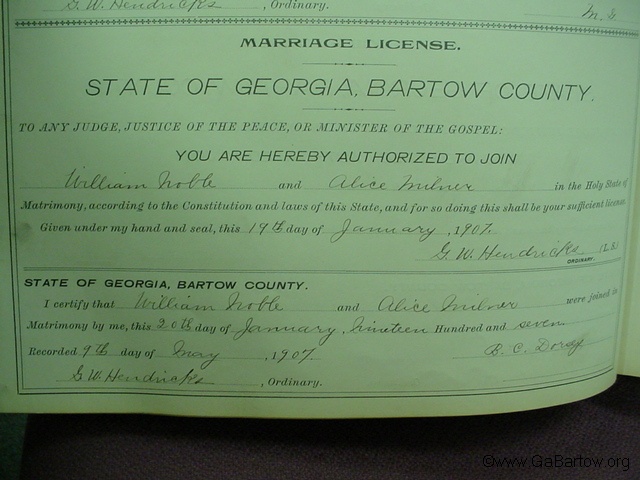 G. W. Hendricks, Ordinary.
MARRIAGE LICENSE.
STATE OF GEORGIA, BARTOW COUNTY.
TO ANY JUDGE, JUSTICE OF THE PEACE, OR MINISTER OF THE GOSPEL:
YOU ARE HEREBY AUTHORIZED TO JOIN
William Noble and Alice Milner in the Holy State of
Matrimony, according to the Constitution and laws of this State, and for so doing this shall be your sufficient license.
Given under my hand and seal, this 19th day of January, 1907.
G. W. Hendricks (L. S.)
ORDINARY.
STATE OF GEORGIA, BARTOW COUNTY.
I certify that William Noble and Alice Milner were joined in
Matrimony by me, this 20th day of January, Nineteen Hundred and seven
Recorded 9th day of May, 1907. B. C. Dorsey
G. W. Hendricks, Ordinary.
©www.GaBartow.org